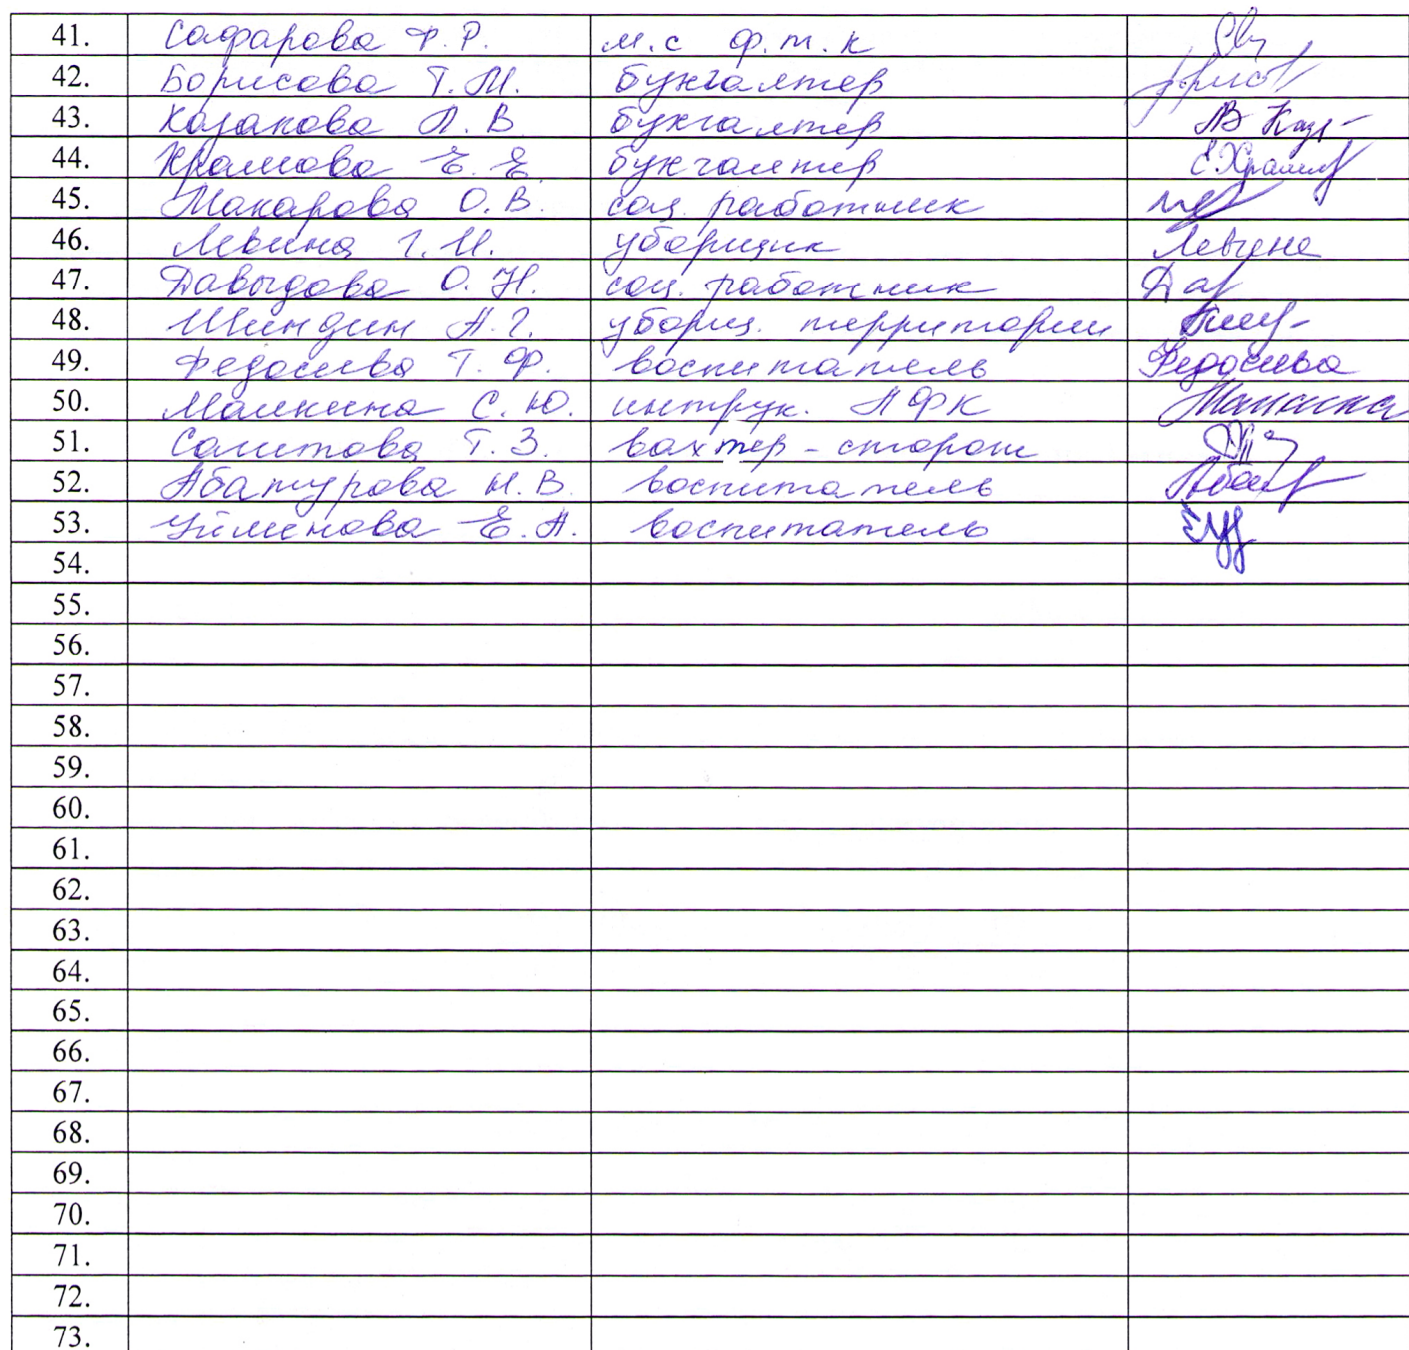 41. Сафарова Ф.Р. м.с ф.т.к
42. Борисова Т.М. бухгалтер
43. Казакова Л.В. бухгалтер
44. Храмова Е.Е. бухгалтер Е.Храмов
45. Макарова О.В. соц. работник
46. Левина Г.И. уборщик Левина
47. Давыдова О.Н. соц. работник Дав
48. Шиндин А.Г. уборщ. территории
49. Федосеева Т.Ф. воспитатель Федосеева
50. Малкина С.Ю. интрук. ЛФК Малкина
51. Саитова Т.З. вахтер - сторож
52. Абатурова Н.В. воспитатель
53. Уйменова Е.А. воспитатель
54.
55.
56.
57.
58.
59.
60.
61.
62.
63.
64.
65.
66.
67.
68.
69.
70.
71.
72.
73.